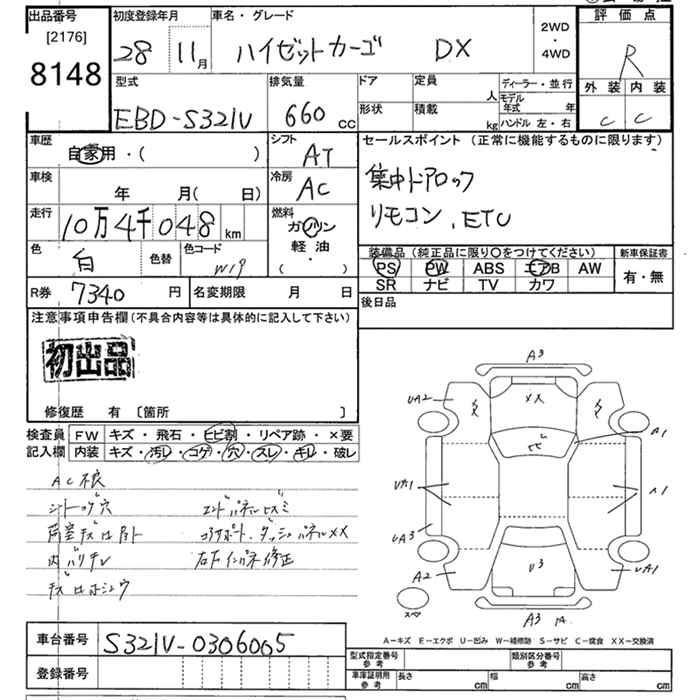 出品番号
[2176]
8148
初度登録年月
28 11月
車名・グレード
ハイゼットカーゴ DX
2WD
・
4WD
評価点
R
外装 内装
C C
型式
EBD-S321V
排気量
660 cc
ドア
形状
定員 人
積載 kg
ディーラー・並行
モデル年式 年
ハンドル 左・右
車歴
自家用・( )
シフト
AT
車検
年 月( 日)
冷房
AC
走行
10万4千048 km
燃料
ガソリン
軽油
( )
色
白
色替
色コード
W19
R券 7340 円
名変期限 月 日
セールスポイント (正常に機能するものに限ります)
集中ドアロック
リモコン、ETC
装備品 (純正品に限り〇をつけてください)
PS PW ABS エアB AW
SR ナビ TV カワ
新車保証書
有・無
後日品
注意事項申告欄 (不具合内容等は具体的に記入して下さい)
初出品
修復歴 有 〔箇所 〕
検査員記入欄
FW キズ・飛石・ヒビ割・リペア跡・×要
内装 キズ・汚レ・コゲ・穴・スレ・キレ・破レ
AC不良
シートコゲ穴
内バリキレ
エンドパネルヒズミ
コアサポート、ダッシュパネルXX
右下インパネ修正
A3
UA2
XX
A1
UA1
A1
UA3
A2
U3
UA1
スペア
A3
A-キズ E-エクボ U-凹み W-補修跡 S-サビ C-腐食 XX-交換済
車台番号 S321V-0306005
登録番号
型式指定番号
参考
類別区分番号
参考
車庫証明用
参考
長さ cm
幅 cm
高さ cm